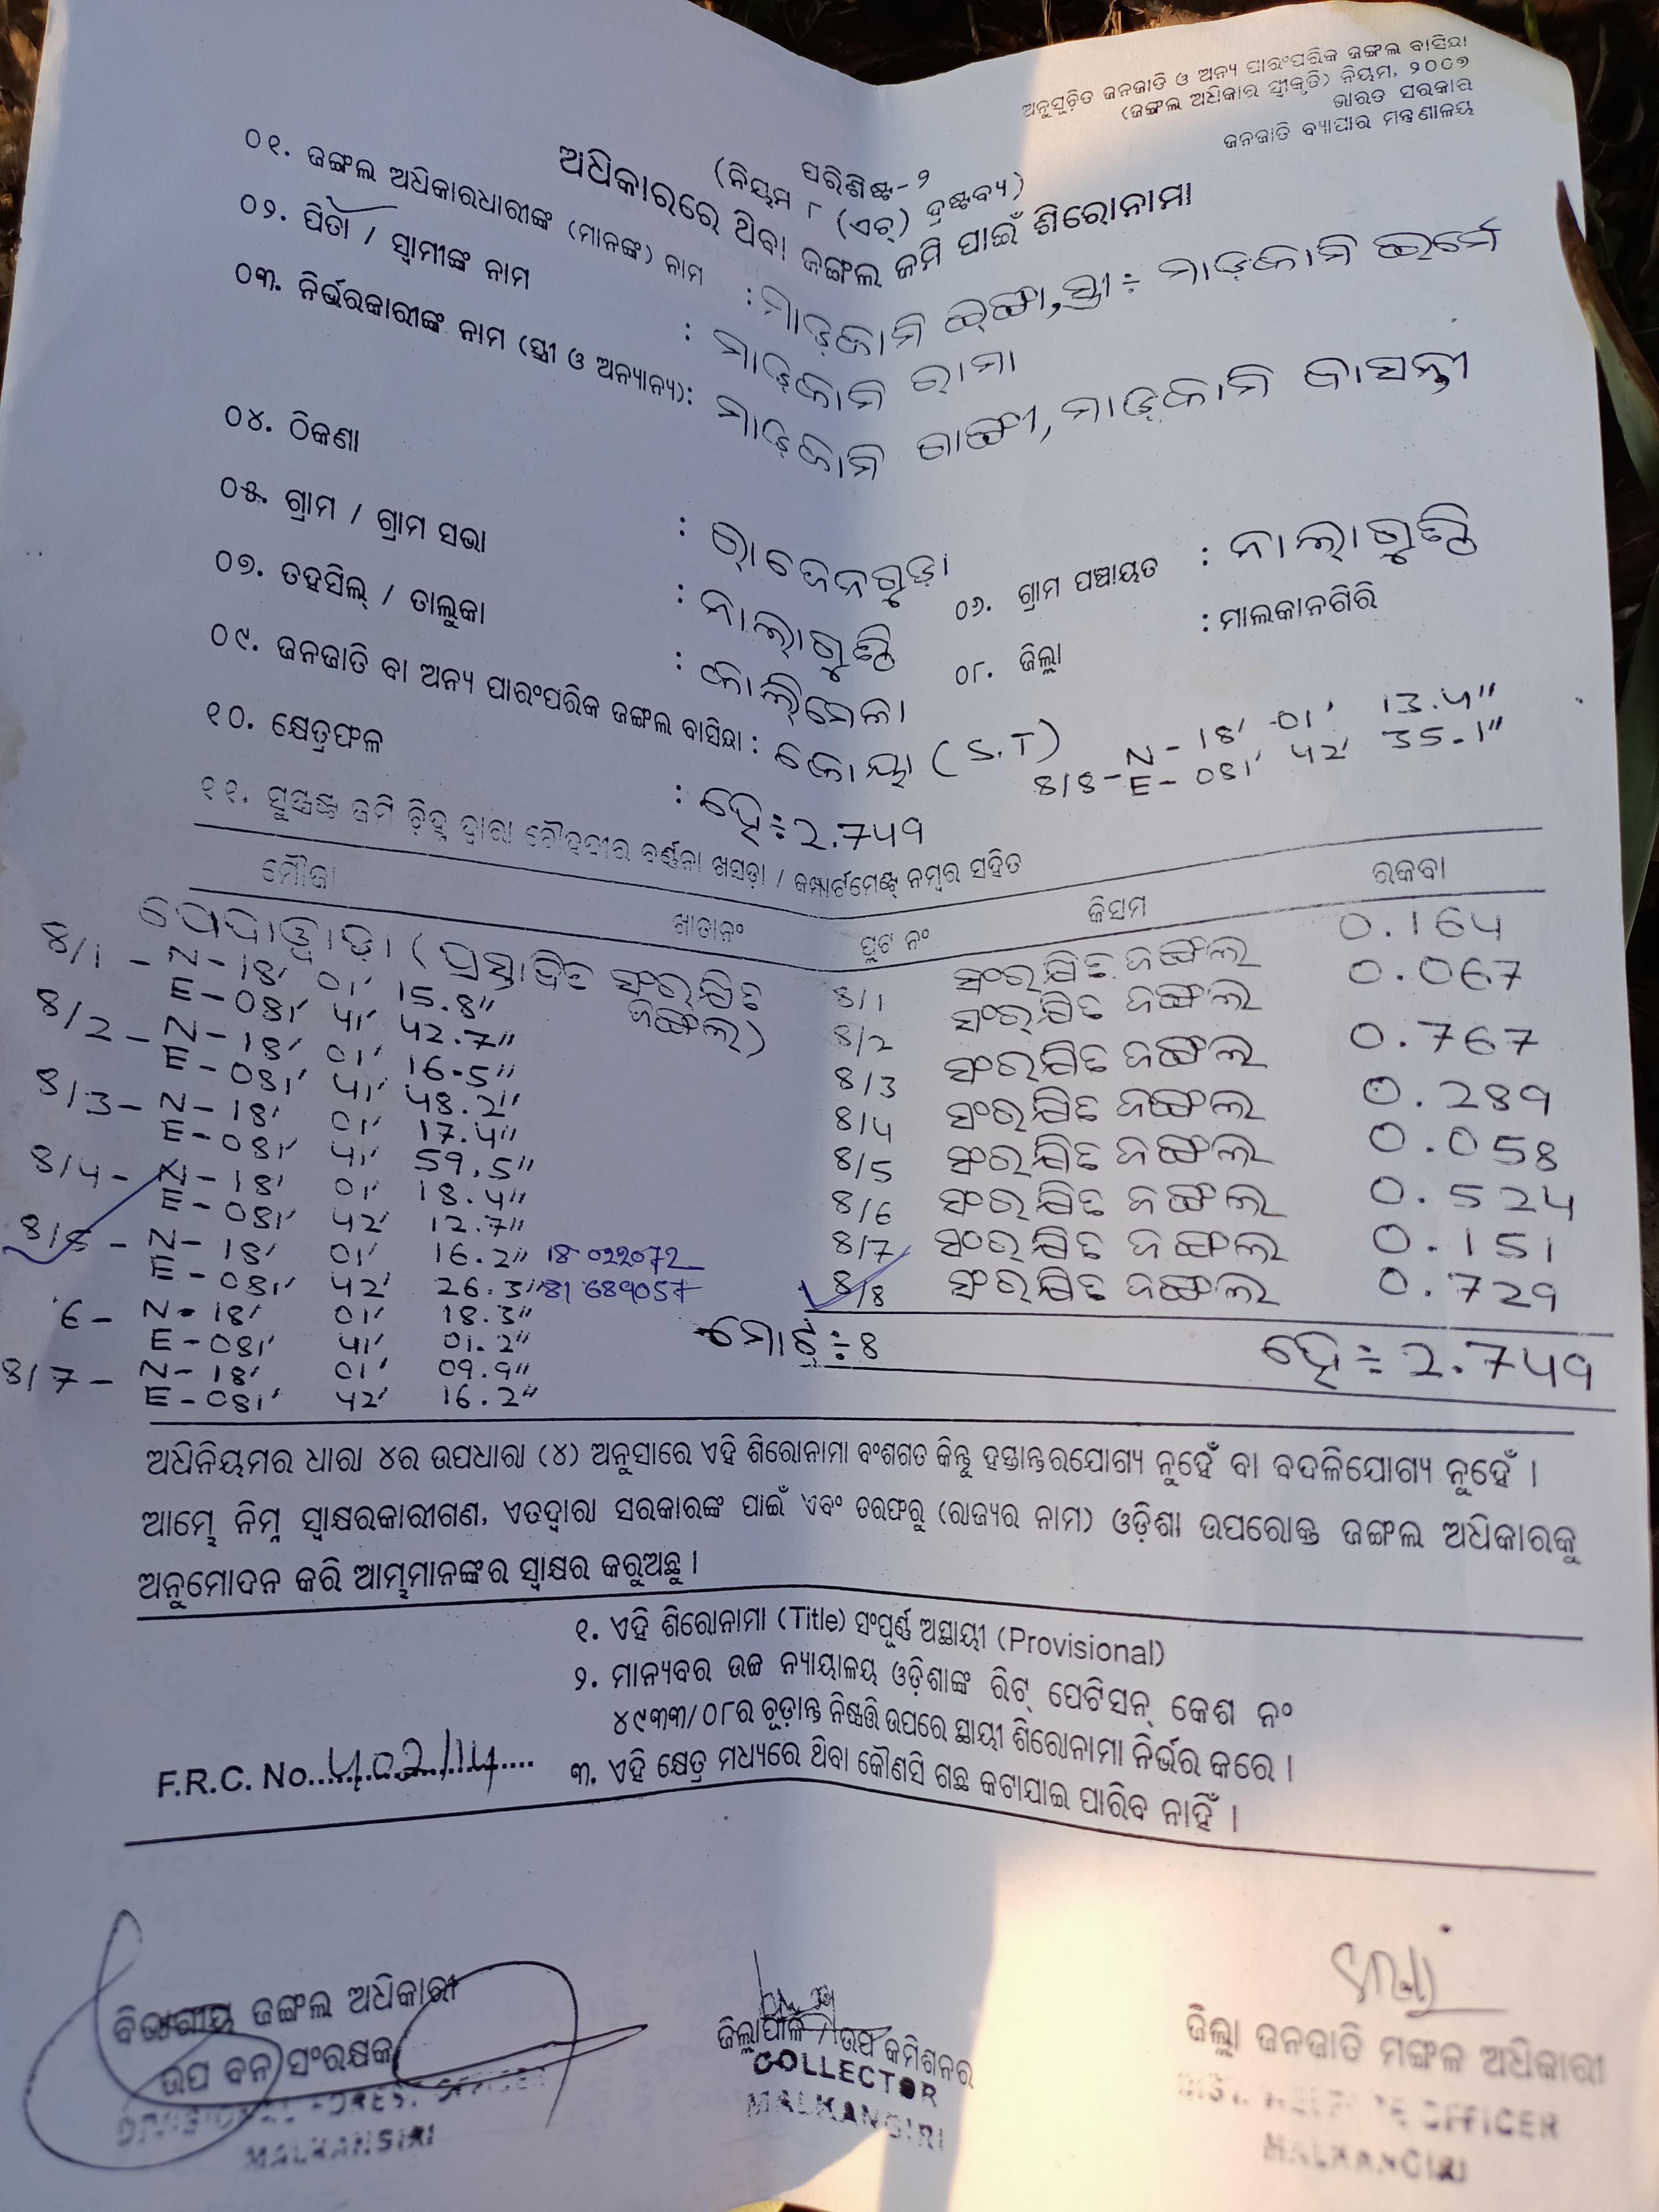 ଅନୁସୂଚିତ ଜନଜାତି ଓ ଅନ୍ୟ ପାରଂପରିକ ଜଙ୍ଗଲ ବାସିନ୍ଦା
(ଜଙ୍ଗଲ ଅଧିକାର ସ୍ୱୀକୃତି) ନିୟମ, ୨୦୦୭
ଭାରତ ସରକାର
ଜନଜାତି ବ୍ୟାପାର ମନ୍ତ୍ରଣାଳୟ
ପରିଶିଷ୍ଟ-୨
(ନିୟମ ୮ (ଏଚ୍) ଦ୍ରଷ୍ଟବ୍ୟ)
ଅଧିକାରରେ ଥିବା ଜଙ୍ଗଲ ଜମି ପାଇଁ ଶିରୋନାମା
୦୧. ଜଙ୍ଗଲ ଅଧିକାରଧାରୀଙ୍କ (ମାନଙ୍କ) ନାମ : ମାଡ଼କାମି ଇଙ୍ଗା, ସ୍ତ୍ରୀ÷ ମାଡ଼କାମି ଇର୍ମେ
୦୨. ପିତା / ସ୍ୱାମୀଙ୍କ ନାମ : ମାଡ଼କାମି ରାମା
୦୩. ନିର୍ଭରକାରୀଙ୍କ ନାମ (ସ୍ତ୍ରୀ ଓ ଅନ୍ୟାନ୍ୟ): ମାଡ଼କାମି ଗାଙ୍ଗୀ, ମାଡ଼କାମି ବାସନ୍ତୀ
୦୪. ଠିକଣା : ରାଜେନଗୁଡ଼ା
୦୫. ଗ୍ରାମ / ଗ୍ରାମ ସଭା : ନାଲାଗୁଣ୍ଠି ୦୬. ଗ୍ରାମ ପଞ୍ଚାୟତ : ନାଲାଗୁଣ୍ଠି
୦୭. ତହସିଲ୍ / ତାଲୁକା : କାଲିମେଳା ୦୮. ଜିଲ୍ଲା : ମାଲକାନଗିରି
୦୯. ଜନଜାତି ବା ଅନ୍ୟ ପାରଂପରିକ ଜଙ୍ଗଲ ବାସିନ୍ଦା : କୋୟା (S.T)
8/8- N- 18' 01' 13.4"
E- 081' 42' 35.1"
୧୦. କ୍ଷେତ୍ରଫଳ : ହେ÷2.749
୧୧. ସୁସ୍ପଷ୍ଟ ଜମି ଚିହ୍ନ ଦ୍ୱାରା ଚୌହଦ୍ଦୀର ବର୍ଣ୍ଣନା ଖସଡ଼ା / କମ୍ପାର୍ଟମେଣ୍ଟ ନମ୍ବର ସହିତ
ମୌଜା ଖାତାନଂ ପ୍ଲଟ ନଂ କିସମ ରକବା
(ପ୍ରସ୍ତାବିତ ସଂରକ୍ଷିତ ଜଙ୍ଗଲ)
8/1 ସଂରକ୍ଷିତ ଜଙ୍ଗଲ 0.164
8/2 ସଂରକ୍ଷିତ ଜଙ୍ଗଲ 0.067
8/3 ସଂରକ୍ଷିତ ଜଙ୍ଗଲ 0.767
8/4 ସଂରକ୍ଷିତ ଜଙ୍ଗଲ 0.289
8/5 ସଂରକ୍ଷିତ ଜଙ୍ଗଲ 0.058
8/6 ସଂରକ୍ଷିତ ଜଙ୍ଗଲ 0.524
8/7 ସଂରକ୍ଷିତ ଜଙ୍ଗଲ 0.151
8/8 ସଂରକ୍ଷିତ ଜଙ୍ଗଲ 0.729
8/1 - N- 18' 01' 15.8"
E- 081' 41' 42.7"
8/2 - N- 18' 01' 16.5"
E- 081' 41' 48.2"
8/3 - N- 18' 01' 17.4"
E- 081' 41' 59.5"
8/4 - N- 18' 01' 18.4"
E- 081' 42' 12.7"
8/5 - N- 18' 01' 16.2" 18 022072
E- 081' 42' 26.3" 81 689057
6 - N- 18' 01' 18.3"
E- 081' 41' 01.2"
8/7 - N- 18' 01' 09.9"
E- 081' 42' 16.2"
ମୋଟ୍÷8 ହେ÷2.749
ଅଧିନିୟମର ଧାରା ୪ର ଉପଧାରା (୪) ଅନୁସାରେ ଏହି ଶିରୋନାମା ବଂଶଗତ କିନ୍ତୁ ହସ୍ତାନ୍ତରଯୋଗ୍ୟ ନୁହେଁ ବା ବଦଳିଯୋଗ୍ୟ ନୁହେଁ ।
ଆମ୍ଭେ ନିମ୍ନ ସ୍ୱାକ୍ଷରକାରୀଗଣ, ଏତଦ୍ୱାରା ସରକାରଙ୍କ ପାଇଁ ଏବଂ ତରଫରୁ (ରାଜ୍ୟର ନାମ) ଓଡ଼ିଶା ଉପରୋକ୍ତ ଜଙ୍ଗଲ ଅଧିକାରକୁ
ଅନୁମୋଦନ କରି ଆମ୍ଭମାନଙ୍କର ସ୍ୱାକ୍ଷର କରୁଅଛୁ ।
୧. ଏହି ଶିରୋନାମା (Title) ସଂପୂର୍ଣ୍ଣ ଅସ୍ଥାୟୀ (Provisional)
୨. ମାନ୍ୟବର ଉଚ୍ଚ ନ୍ୟାୟାଳୟ ଓଡ଼ିଶାଙ୍କ ରିଟ୍ ପେଟିସନ୍ କେଶ ନଂ
୪୯୩୩/୦୮ର ଚୂଡ଼ାନ୍ତ ନିଷ୍ପତ୍ତି ଉପରେ ସ୍ଥାୟୀ ଶିରୋନାମା ନିର୍ଭର କରେ ।
୩. ଏହି କ୍ଷେତ୍ର ମଧ୍ୟରେ ଥିବା କୌଣସି ଗଛ କଟାଯାଇ ପାରିବ ନାହିଁ ।
F.R.C. No. 402/14
ବିଭାଗୀୟ ଜଙ୍ଗଲ ଅଧିକାରୀ
ଉପ ବନ ସଂରକ୍ଷକ
DIVISIONAL FOREST OFFICER
MALKANGIRI
ଜିଲ୍ଲାପାଳ / ଉପ କମିଶନର
COLLECTOR
MALKANGIRI
ଜିଲ୍ଲା ଜନଜାତି ମଙ୍ଗଳ ଅଧିକାରୀ
DIST. WELFARE OFFICER
MALKANGIRI